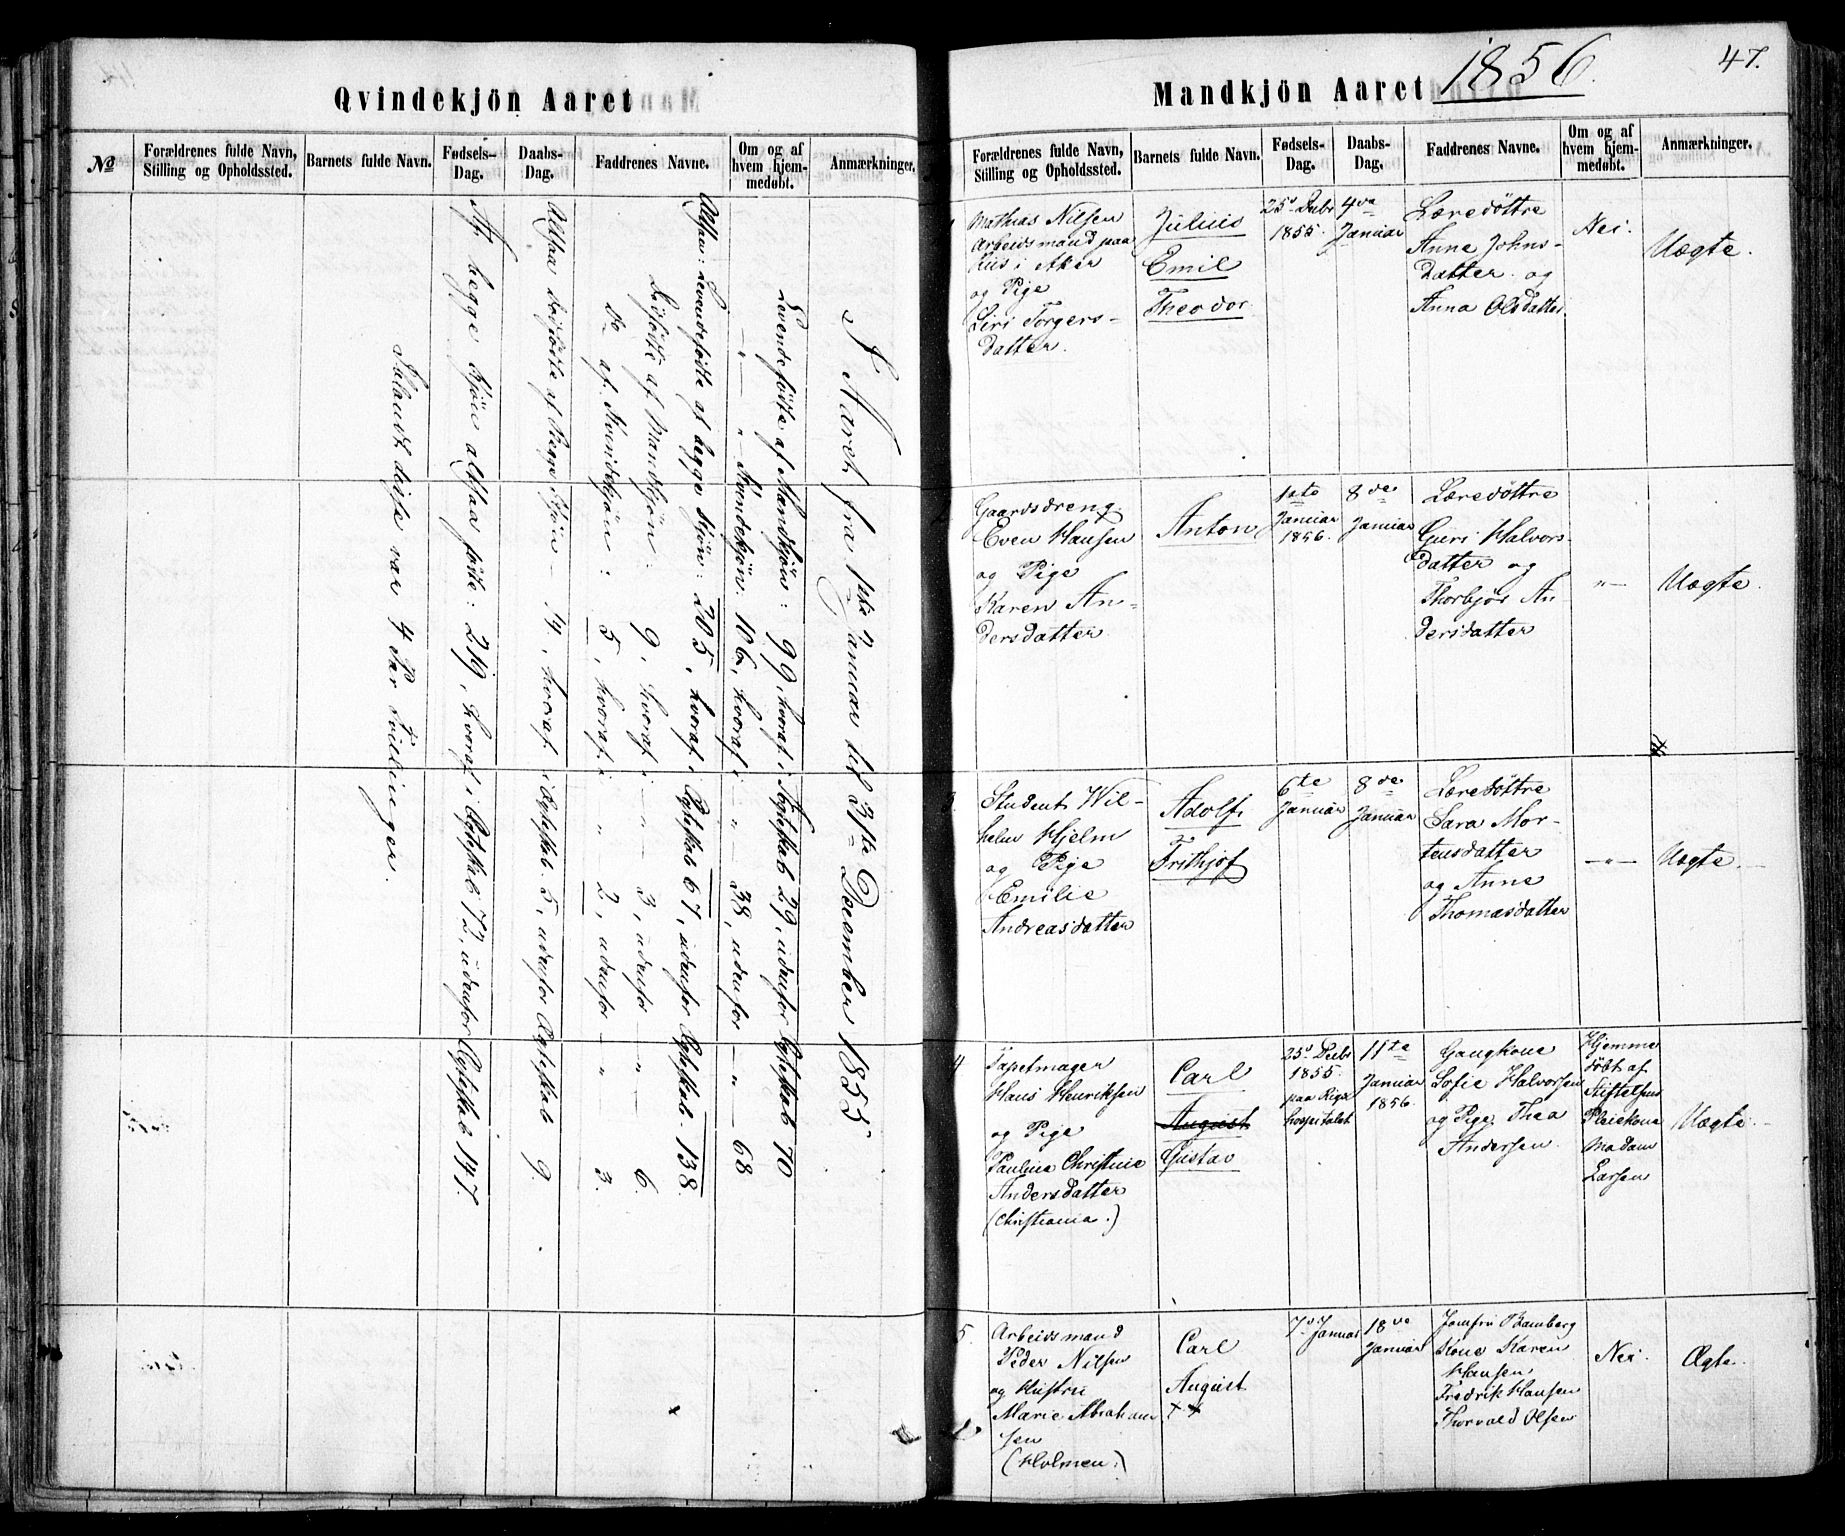 Qvindekjön Aaret
№
Forældrenes fulde Navn,
Stilling og Opholdssted.
Barnets fulde Navn.
Fødsels-
Dag.
Daabs-
Dag.
Faddrenes Navne.
Om og af
hvem hjem-
medøbt.
Anmærkninger.
I Aaret fra 1ste Januar til 31te December 1855
Levendefødte af Mandkjön: 99, hvoraf i Ægteskab 29, udenfor Ægteskab 70
— „ — „ Kvindekjön: 106, hvoraf „ „ 38, udenfor — „ — 68
Altsaa: Levendefødte af begge Kjön: 205, hvoraf i Ægteskab 67, udenfor Ægteskab 138.
Dødfødte af Mandkjön: 9, hvoraf — „ — 3, udenfor — „ — 6
do af Kvindekjön: 5, hvoraf „ — 2, udenfor — „ — 3.
Altsaa dødfødte af Begge Kjön — 14, hvoraf i Ægteskab 5, udenfor Ægteskab 9.
Af begge Kjön altsaa fødte: 219, hvoraf i Ægteskab 72, udenfor Ægteskab 147.
Iblandt disse var 4 Par Tvillinger.
Mandkjön Aaret 1856.
47.
Forældrenes fulde Navn,
Stilling og Opholdssted.
Barnets fulde Navn.
Fødsels-
Dag.
Daabs-
Dag.
Faddrenes Navne.
Om og af
hvem hjem-
medøbt.
Anmærkninger.
Mathias Nilsen
Arbeidsmand paa
Riis i Aker
og Pige
Siri Torgers-
datter.
Julius
Emil
Theodor
25d Decbr
1855.
4de
Januar
Læredøttre
Anne Johns-
datter og
Anna Olsdatter
Nei.
Uægte.
Gaardsdreng
Even Hansen
og Pige
Karen An-
dersdatter
Anton
1ste
Januar
1856.
8de
Januar
Læredøttre
Guri Halvors-
datter og
Thorbjør An
dersdatter
„ —
Uægte.
Student Wil-
helm Hjelm
og Pige
Emilie
Andreasdatter
Adolf
Frithjof
6te
Januar
8de
Januar
Læredøttre
Sara Mor-
tensdatter
og Anne
Thomasdatter
— „ —
Uægte.
4
Tapetmager
Hans Henriksen
og Pige
Pauline Christine
Andersdatter
(Christiania.)
Carl
August
Gustav
25d Decbr
1855.
paa Rigs
hospitalet
11te
Januar
1856.
Gangkone
Sofie Halvorsen
og Pige Thea
Andersen.
Hjemme
døbt af
Stiftelsens
Pleiekone
Madam
Larsen
Uægte.
5.
Arbeidsmand
Peder Nilsen
og Hustru
Marie Abraham
sen
(Holmen.)
Carl
August
7d Januar
18de
Januar
Jomfru Bamberg
Kone Karen
Hansen
Fredrik Hansen
Thorvald Olsen
Nei.
Ægte.